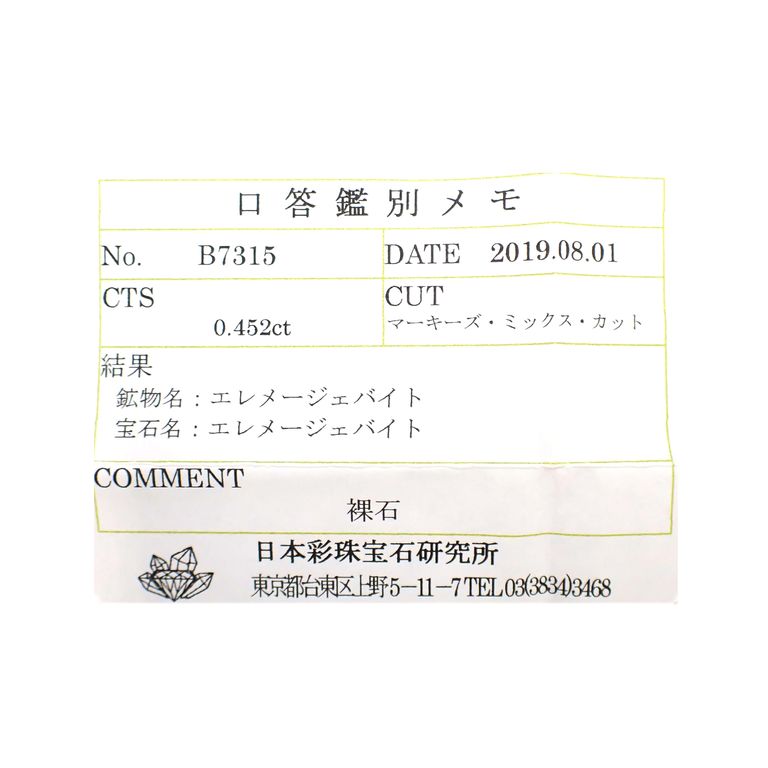 口答鑑別メモ
No. B7315 DATE 2019.08.01
CTS CUT
0.452ct マーキーズ・ミックス・カット
結果
鉱物名：エレメージェバイト
宝石名：エレメージェバイト
COMMENT
裸石
日本彩珠宝石研究所
東京都台東区上野5－11－7 TEL 03(3834)3468